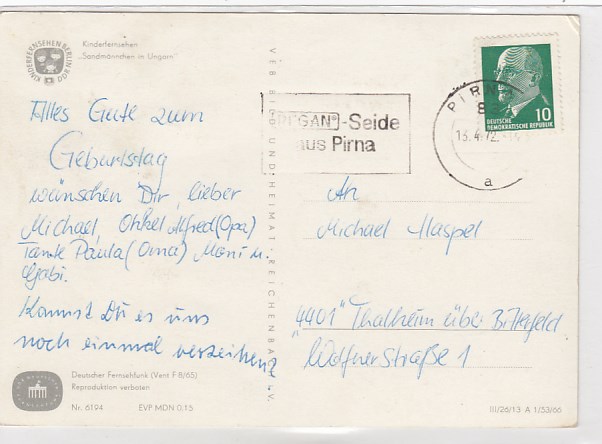 KINDERFERNSEHEN BERLIN DDR
Kinderfernsehen
„Sandmännchen in Ungarn“
Alles Gute zum
Geburtstag
wünschen Dir, lieber
Michael, Onkel Alfred (Opa)
Tante Paula (Oma) Moni u.
Gabi.
Kannst Du es uns
noch einmal verzeihen?
Deutscher Fernsehfunk (Vent F 8/65)
Reproduktion verboten
Nr. 6194 EVP MDN 0,15
VEB BILD UND HEIMAT REICHENBACH I. V.
-Seide
aus Pirna
PIRNA
8
13.4.72
a
10
DEUTSCHE
DEMOKRATISCHE REPUBLIK
An
Michael Haspel
"4401" Thalheim über Bitterfeld
Wolfner Straße 1
III/26/13 A 1/53/66